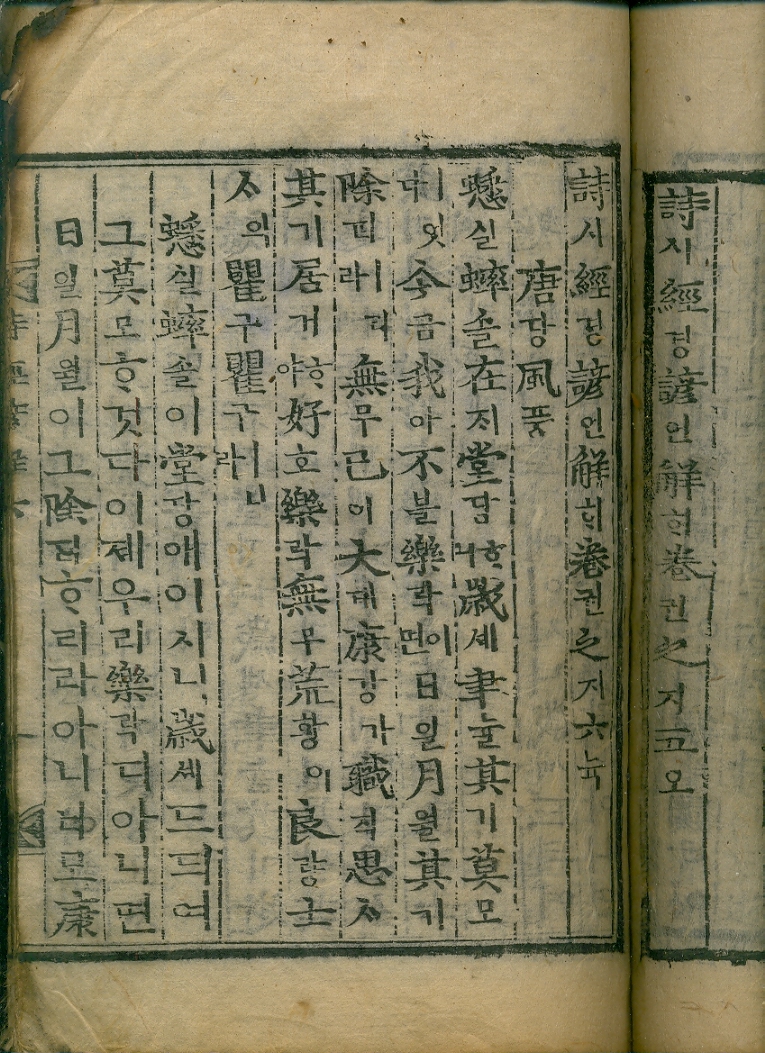 詩시經경諺언解ᄒᆡ卷권之지五오
詩시經경諺언解ᄒᆡ卷권之지六뉵
唐당風풍
蟋실蟀솔在ᄌᆡ堂당ᄒᆞ니歲셰聿율其기莫모
ㅣ엿다今금我아不블樂락이면日일月월其기
除뎌ㅣ리라無무已이大대康강가職직思ᄉᆞ
其기居거ᄒᆞ야好호樂락無무荒황이良량士
ᄉᆞ의瞿구瞿구ㅣ니라
蟋실蟀솔이堂당애이시니歲셰드듸여
그莫모ᄒᆞ것다이제우리樂락디아니면
日일月월이그除뎌ᄒᆞ리라아니너모康